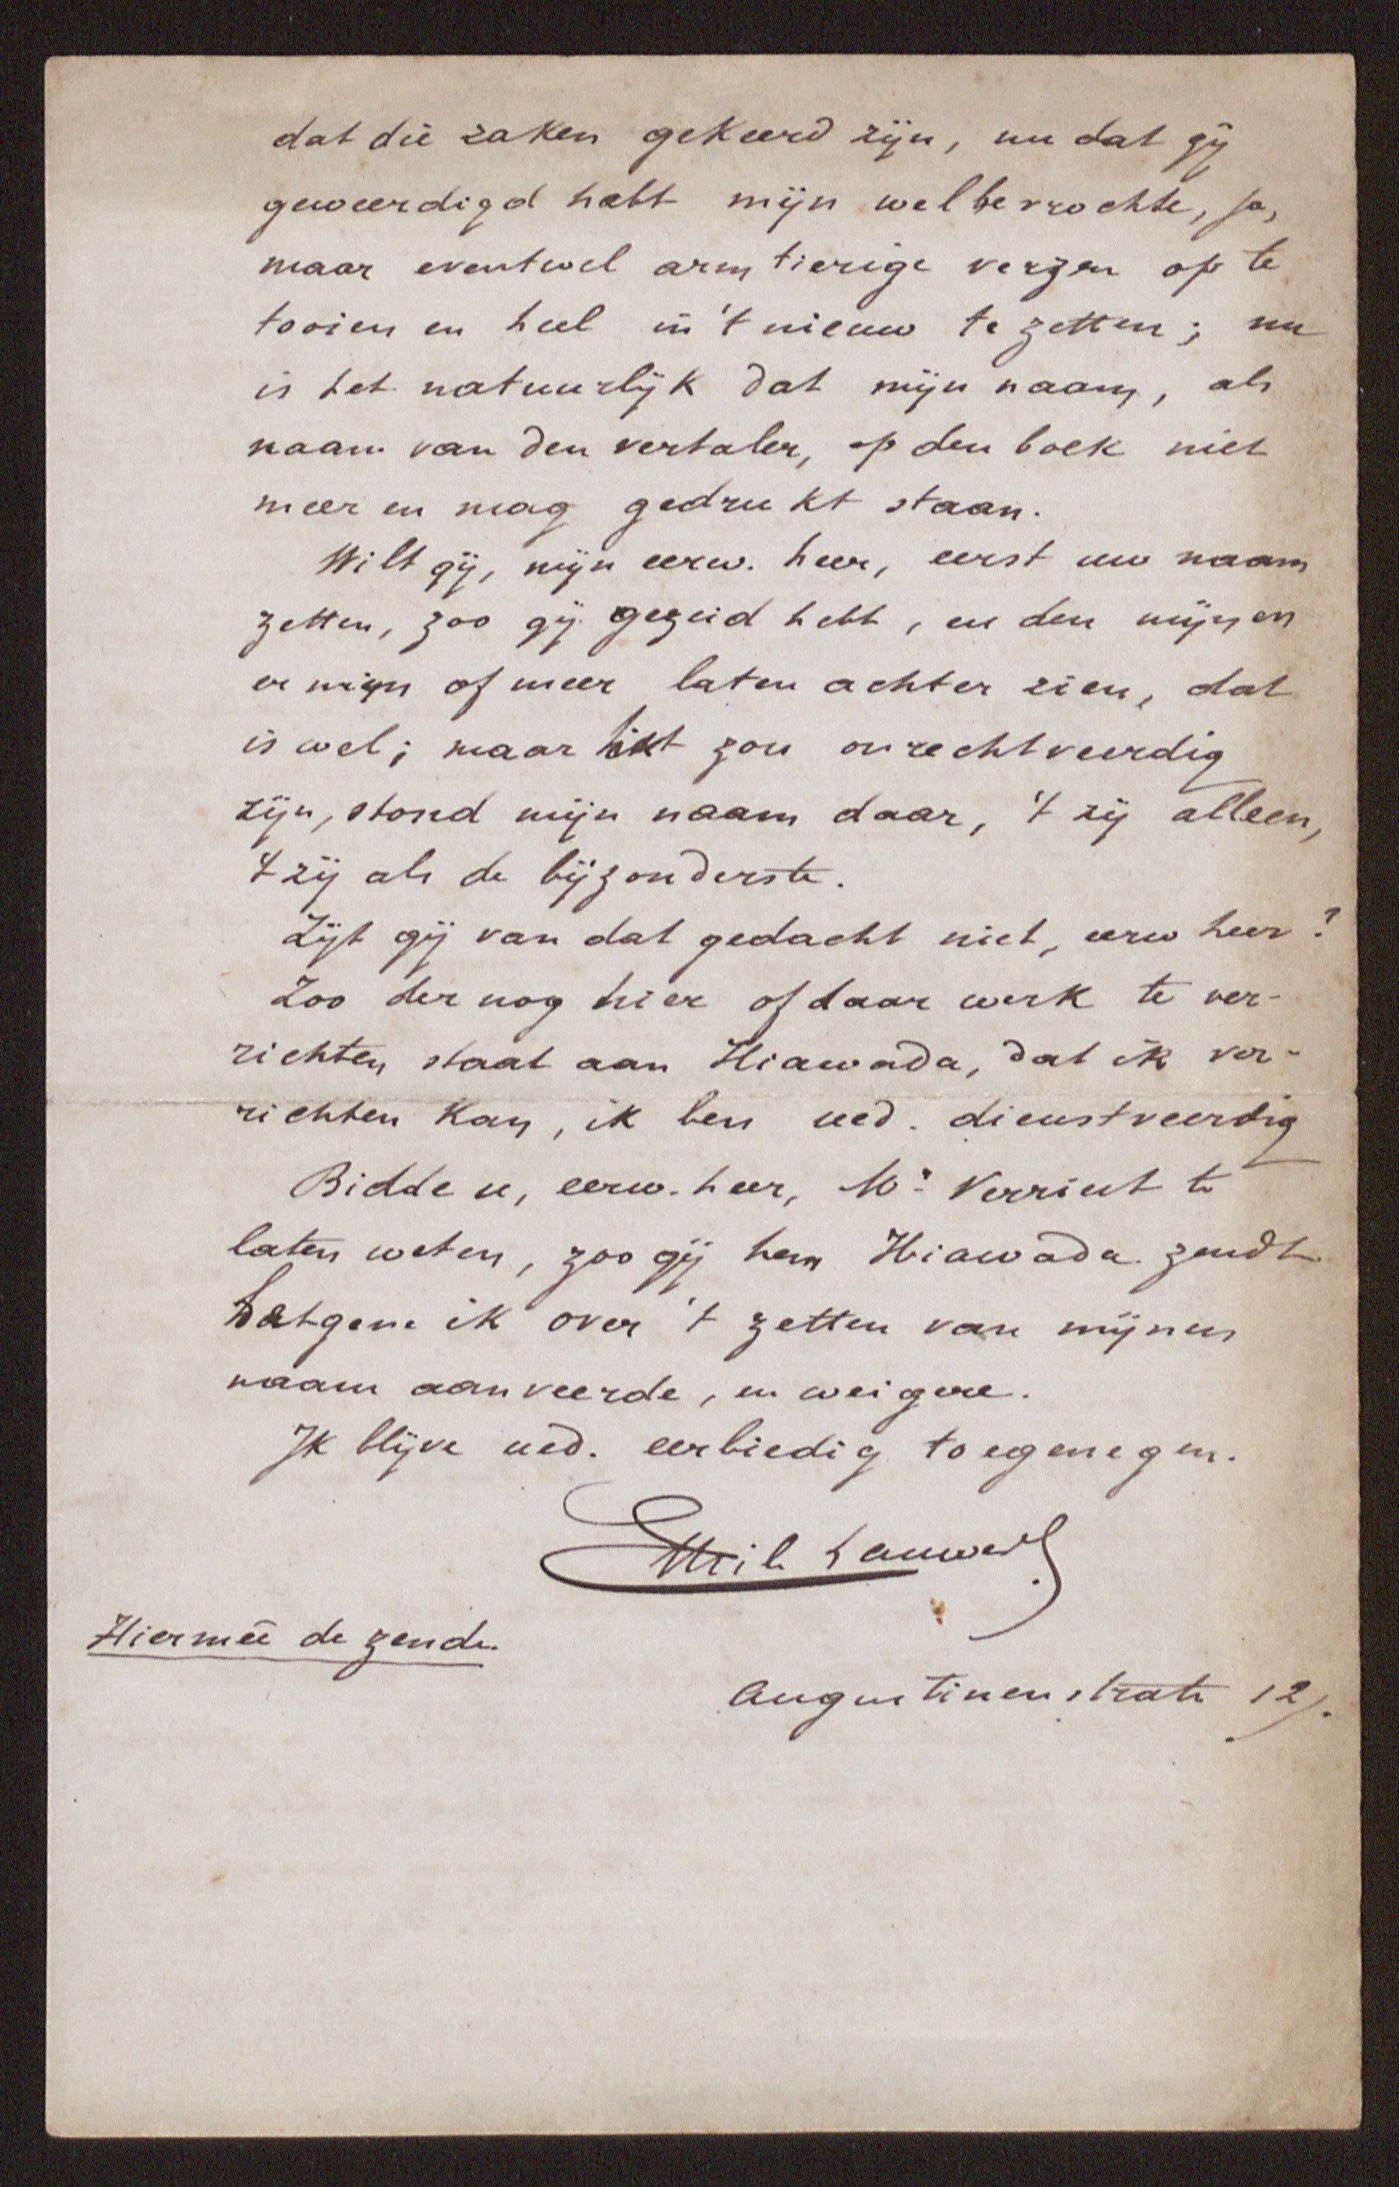 dat die zaken gekeerd zijn, nu dat gij
geweerdigd hebt mijn welbevrochte, ja,
maar eventwel armtierige verzen op te
tooien en heel in 't nieuw te zetten; nu
is het natuurlijk dat mijn naam, als
naam van den vertaler, op den boek niet
meer en mag gedrukt staan.
Wilt gij, mijn eerw. heer, eerst uw naam
zetten, zoo gij gezeid hebt, en den mijnen
er min of meer laten achter zien, dat
is wel; maar het zou onrechtveerdig
zijn, stond mijn naam daar, 't zij alleen,
't zij als de bijzonderste.
Zijt gij van dat gedacht niet, eerw heer?
Zoo der nog hier of daar werk te ver-
richten staat aan Hiawada, dat ik ver-
richten kan, ik ben ued. dienstveerdig
Bidde u, eerw. heer, Mr Verriest te
laten weten, zoo gij hem Hiawada zendt
hetgene ik over 't zetten van mijnen
naam aanveerde, en weigere.
Ik blijve ued. eerbiedig toegenegen.
Emil Lauwers
Hiermeê de zende.
Augustinenstrate 12.